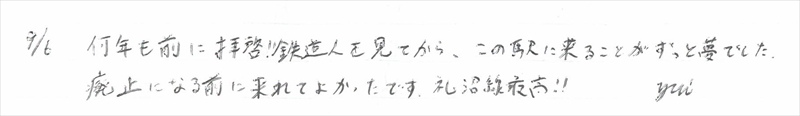 9/6 何年も前に拝啓!!鉄道人を見てから、この駅に来ることがずっと夢でした.
廃止になる前に来れてよかったです.札沼線最高!! yui